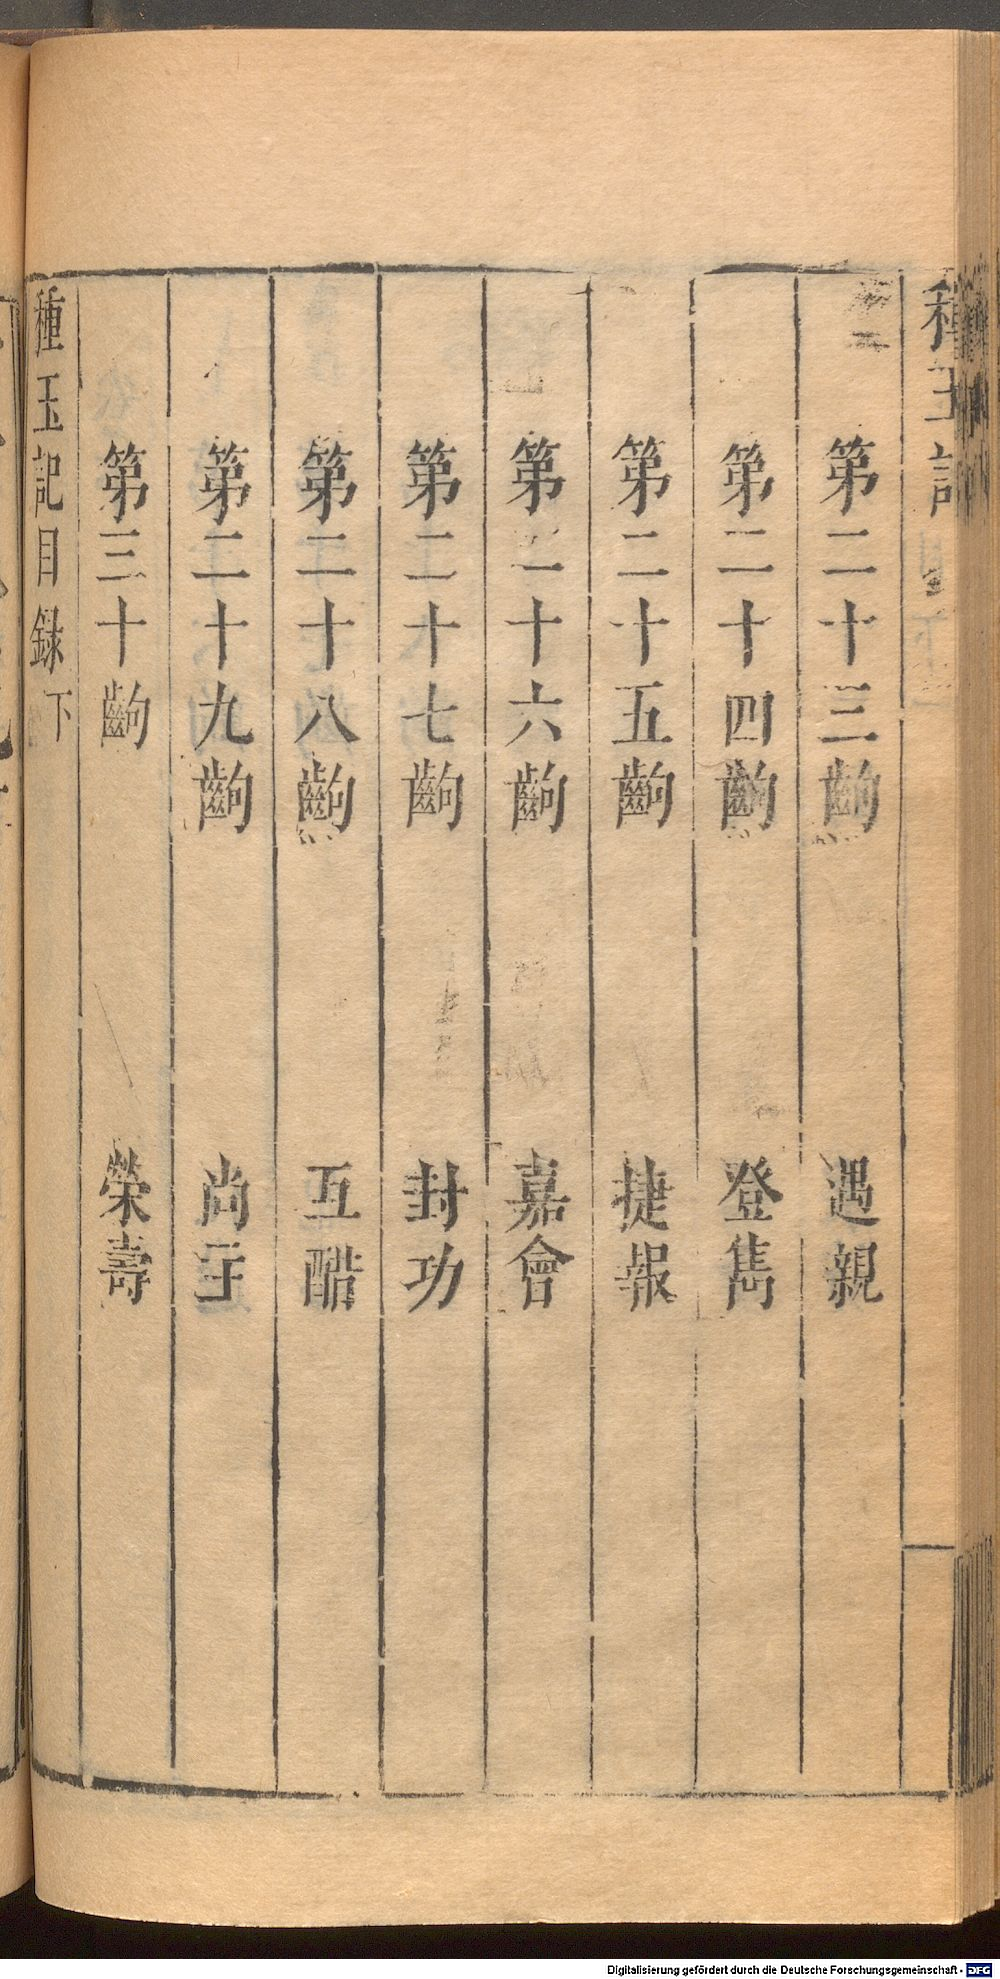 種玉記
第二十三齣 遇親
第二十四齣 登雋
第二十五齣 捷報
第二十六齣 嘉會
第二十七齣 封功
第二十八齣 互醋
第二十九齣 尚主
第三十齣 榮壽
種玉記目録下
Digitalisierung gefördert durch die Deutsche Forschungsgemeinschaft - DFG